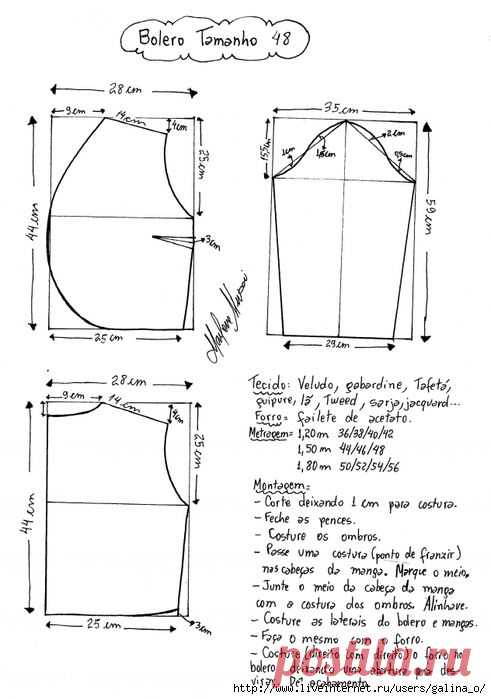 Bolero Tamanho 48
28 cm
9 cm
14 cm
4 cm
25 cm
44 cm
3 cm
25 cm
35 cm
15,5 cm
1 cm
1,5 cm
2 cm
0,5 cm
59 cm
29 cm
28 cm
9 cm
14 cm
4 cm
25 cm
44 cm
25 cm
3 cm
Tecido: Veludo, gabardine, Tafetá,
guipure, lã, Tweed, sarja, jacquard...
Forro= failete de acetato.
Metragem= 1,20m 36/38/40/42
1,50m 44/46/48
1,80m 50/52/54/56
Montagem=
- Corte deixando 1 cm para costura.
- Feche as pences.
- Costure os ombros.
- Passe uma costura (ponto de franzir)
nas cabeças da manga. Marque o meio.
- Junte o meio da cabeça da manga
com a costura dos ombros. Alinhave.
- Costure as laterais do bolero e mangas.
- Faça o mesmo com o forro.
- Costure (direito com direito) o forro no
bolero deixando uma abertura pra des
virar. Dê acabamento.
postila.ru
www.liveinternet.ru/users/galina_o/